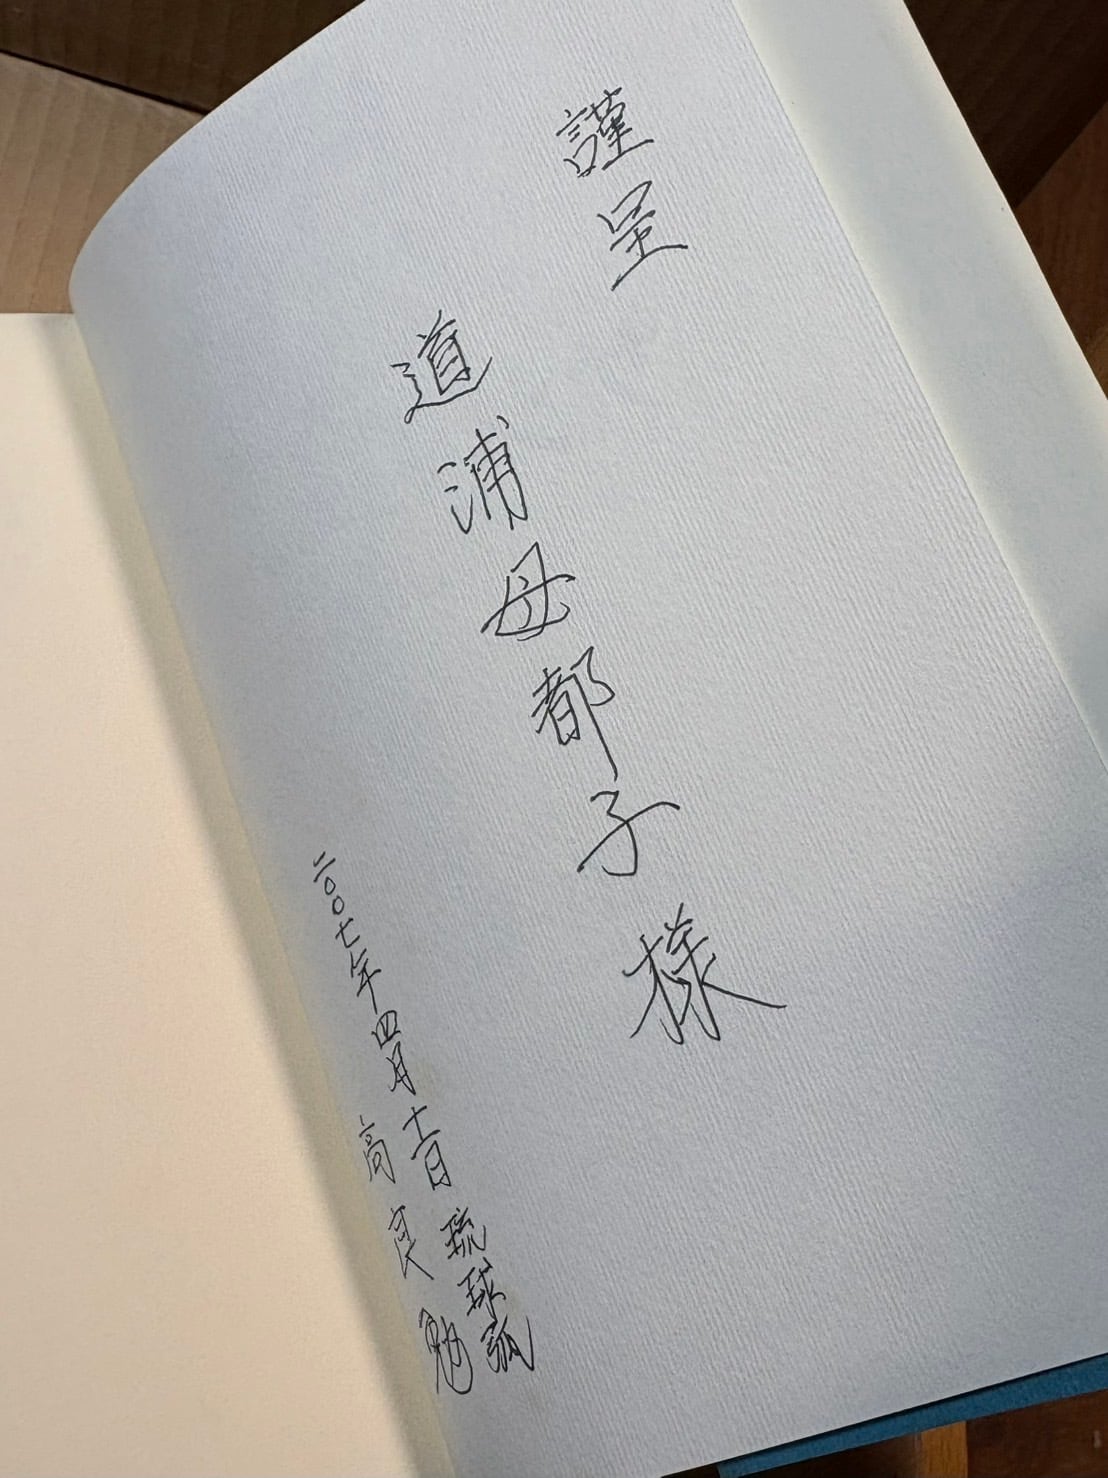 謹呈
道浦母都子様
二〇〇七年四月十一日 琉球弧
高良勉